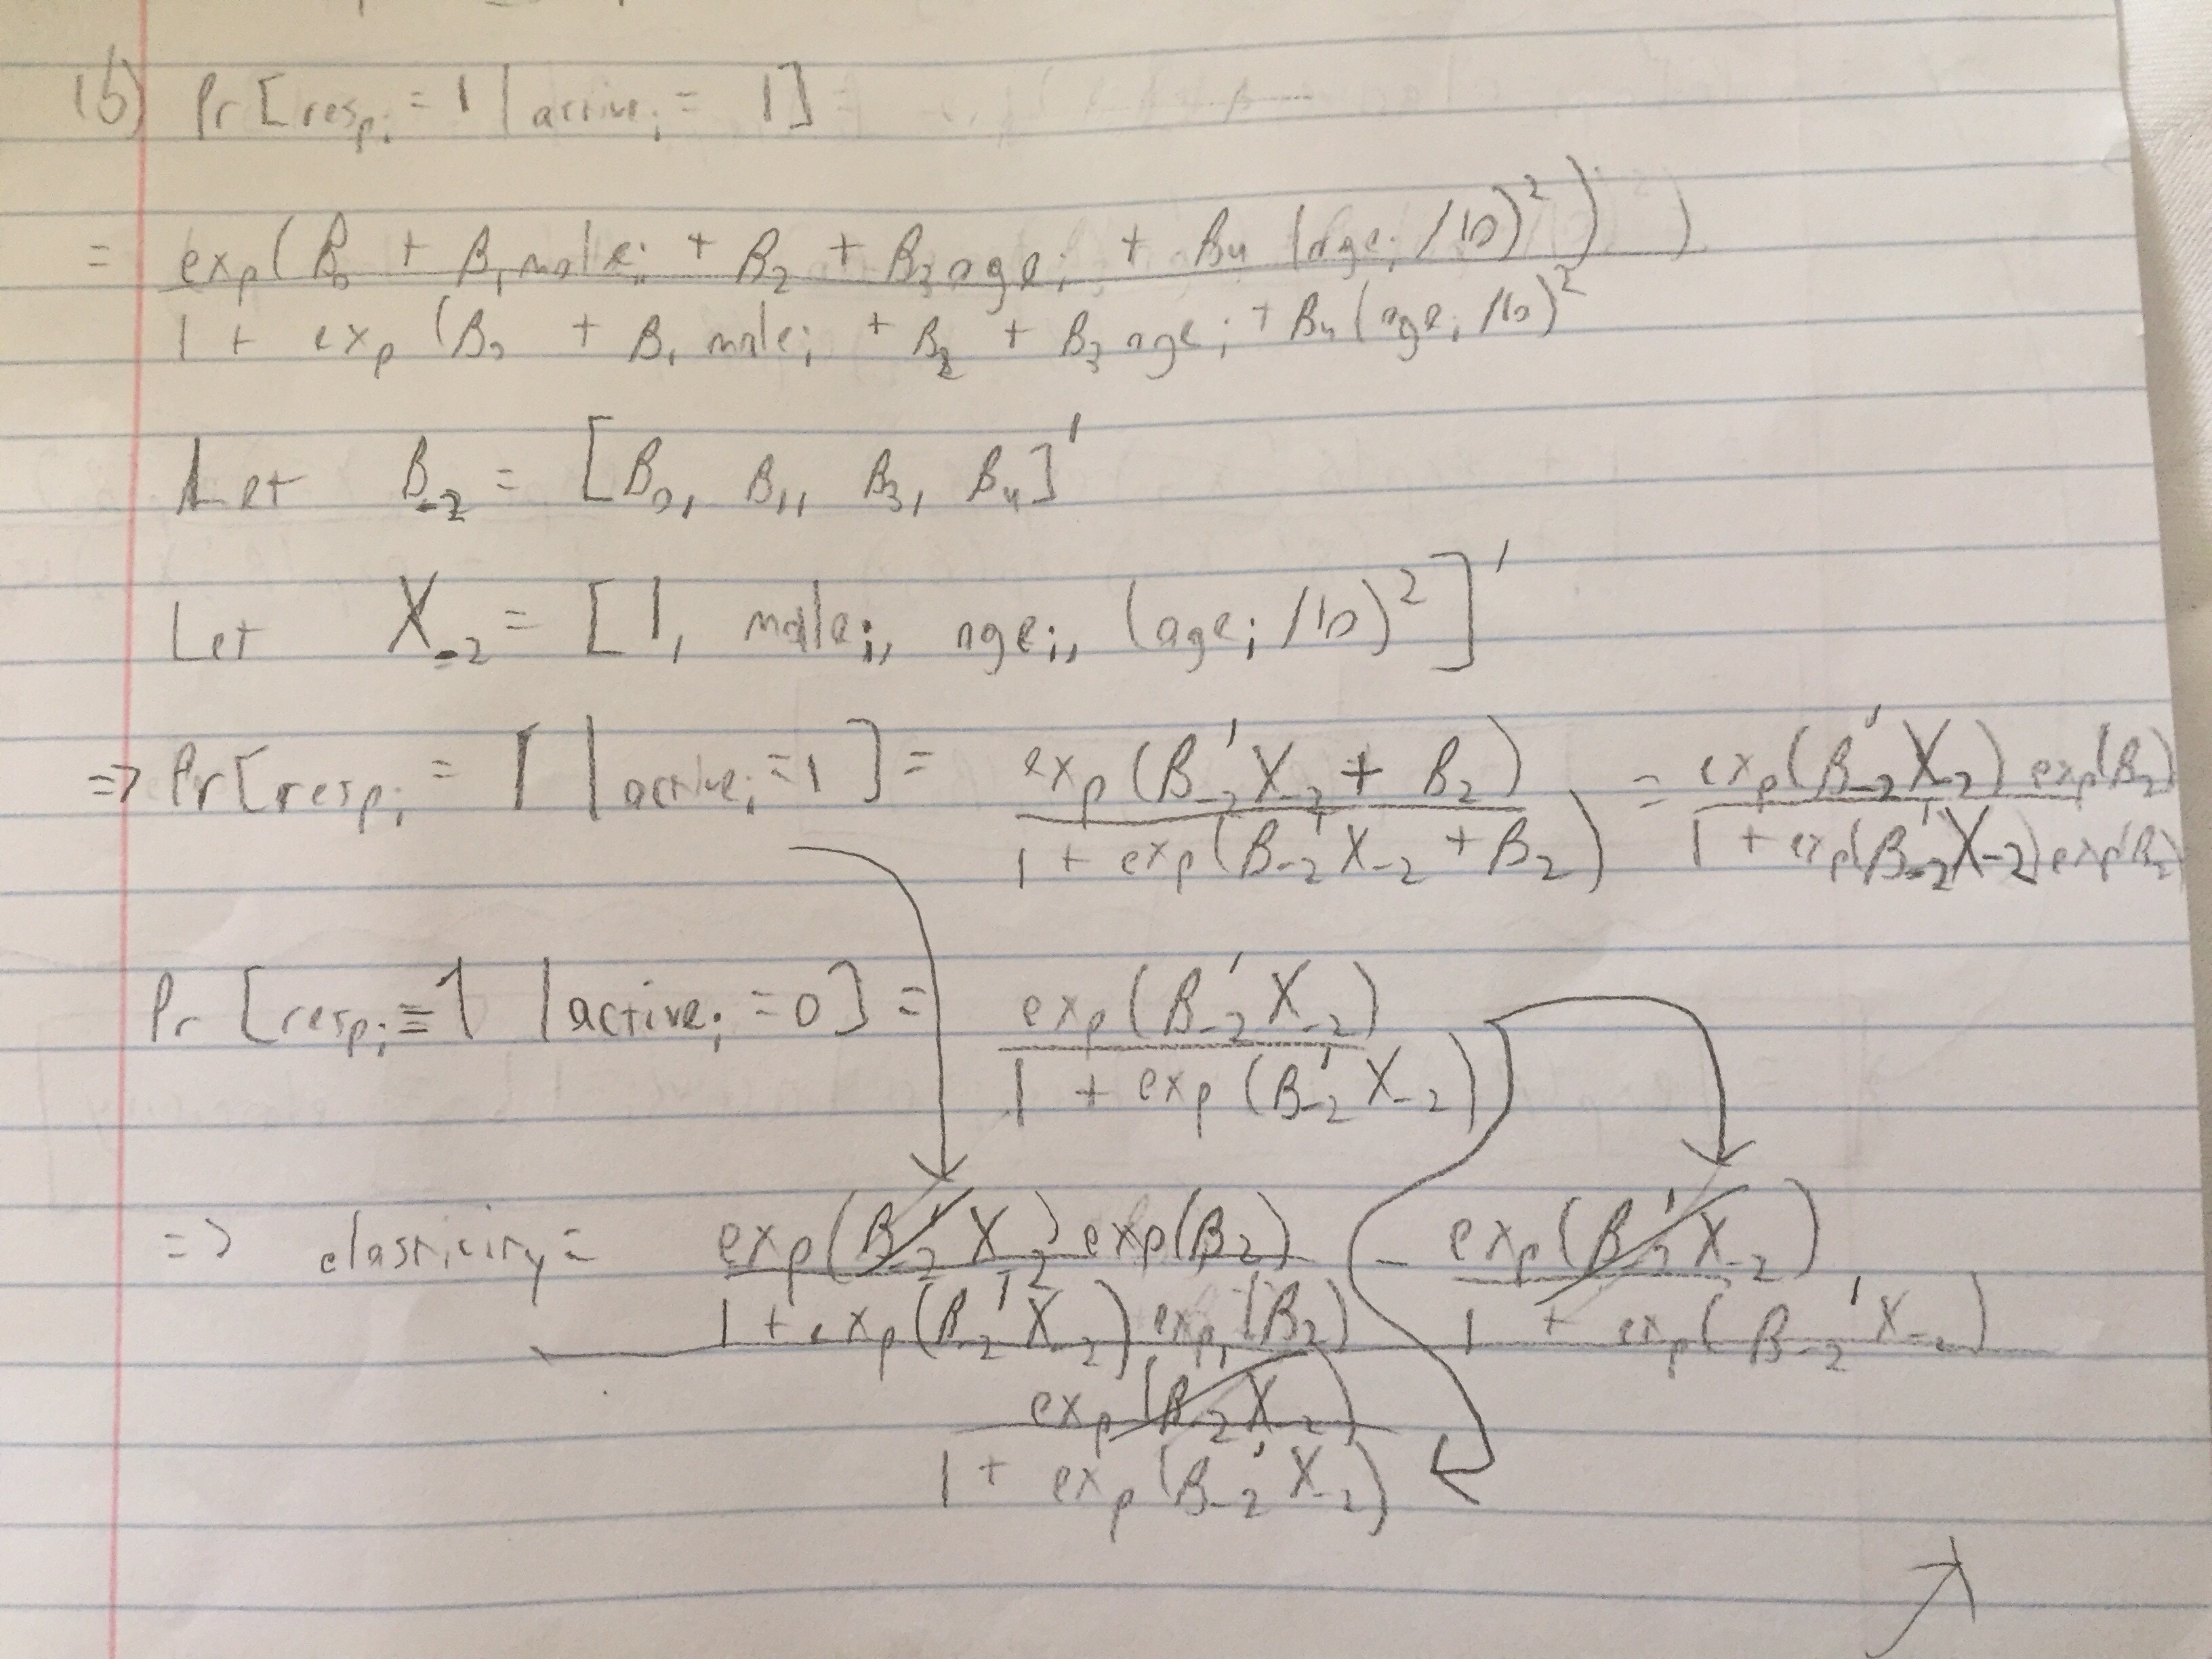 (b) Pr[resp_i = 1 | active_i = 1]
= exp(β_0 + β_1 male_i + β_2 + β_3 age_i + β_4 (age_i/10)^2)
1 + exp(β_0 + β_1 male_i + β_2 + β_3 age_i + β_4(age_i/10)^2
Let β_-2 = [β_0, β_1, β_3, β_4]'
Let X_-2 = [1, male_i, age_i, (age_i/10)^2]'
=> Pr[resp_i = 1 | active_i = 1] = exp(β_-2'X_-2 + β_2) / 1 + exp(β_-2'X_-2 + β_2) = exp(β_-2'X_-2) exp(β_2) / 1 + exp(β_-2'X_-2) exp(β_2)
Pr[resp_i = 1 | active_i = 0] = exp(β_-2'X_-2) / 1 + exp(β_-2'X_-2)
=> elasticity = exp(β_-2'X_-2) exp(β_2) - exp(β_-2'X_-2)
1 + exp(β_-2'X_-2) exp(β_2) 1 + exp(β_-2'X_-2)
exp(β_-2'X_-2)
1 + exp(β_-2'X_-2)